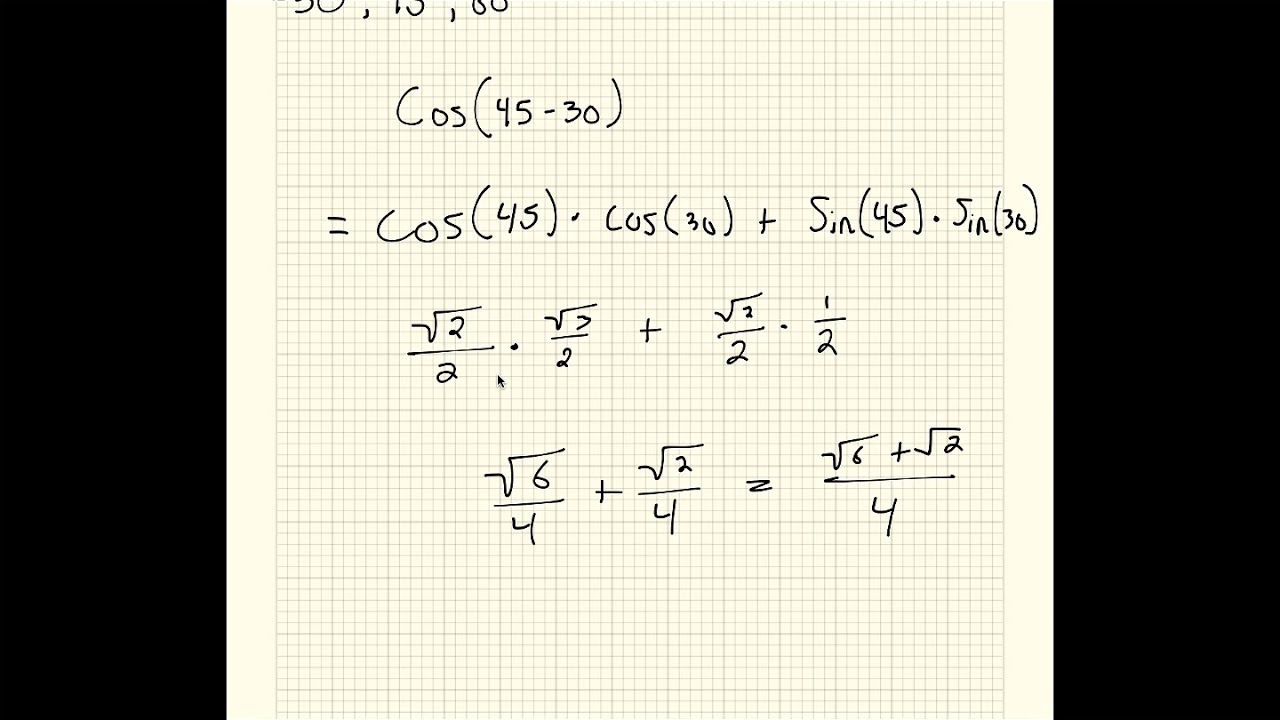 Cos(45-30)
= Cos(45) · cos(30) + Sin(45) · Sin(30)
√2/2 · √3/2 + √2/2 · 1/2
√6/4 + √2/4 = √6 + √2/4